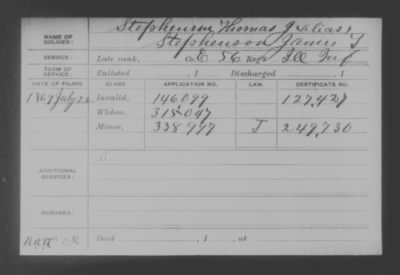 Stephenson, Thomas J. (alias)
NAME OF SOLDIER:
Stephenson James T
SERVICE:
Late rank, Co. E 56 Reg't Ill Inf
TERM OF SERVICE:
Enlisted , 1 Discharged , 1
DATE OF FILING. CLASS. APPLICATION NO. LAW. CERTIFICATE NO.
1869 July 22 Invalid, 146099 127,427
Widow, 318047
Minor, 338997 J 249,730
ADDITIONAL SERVICES:
REMARKS:
Died , 1 , at